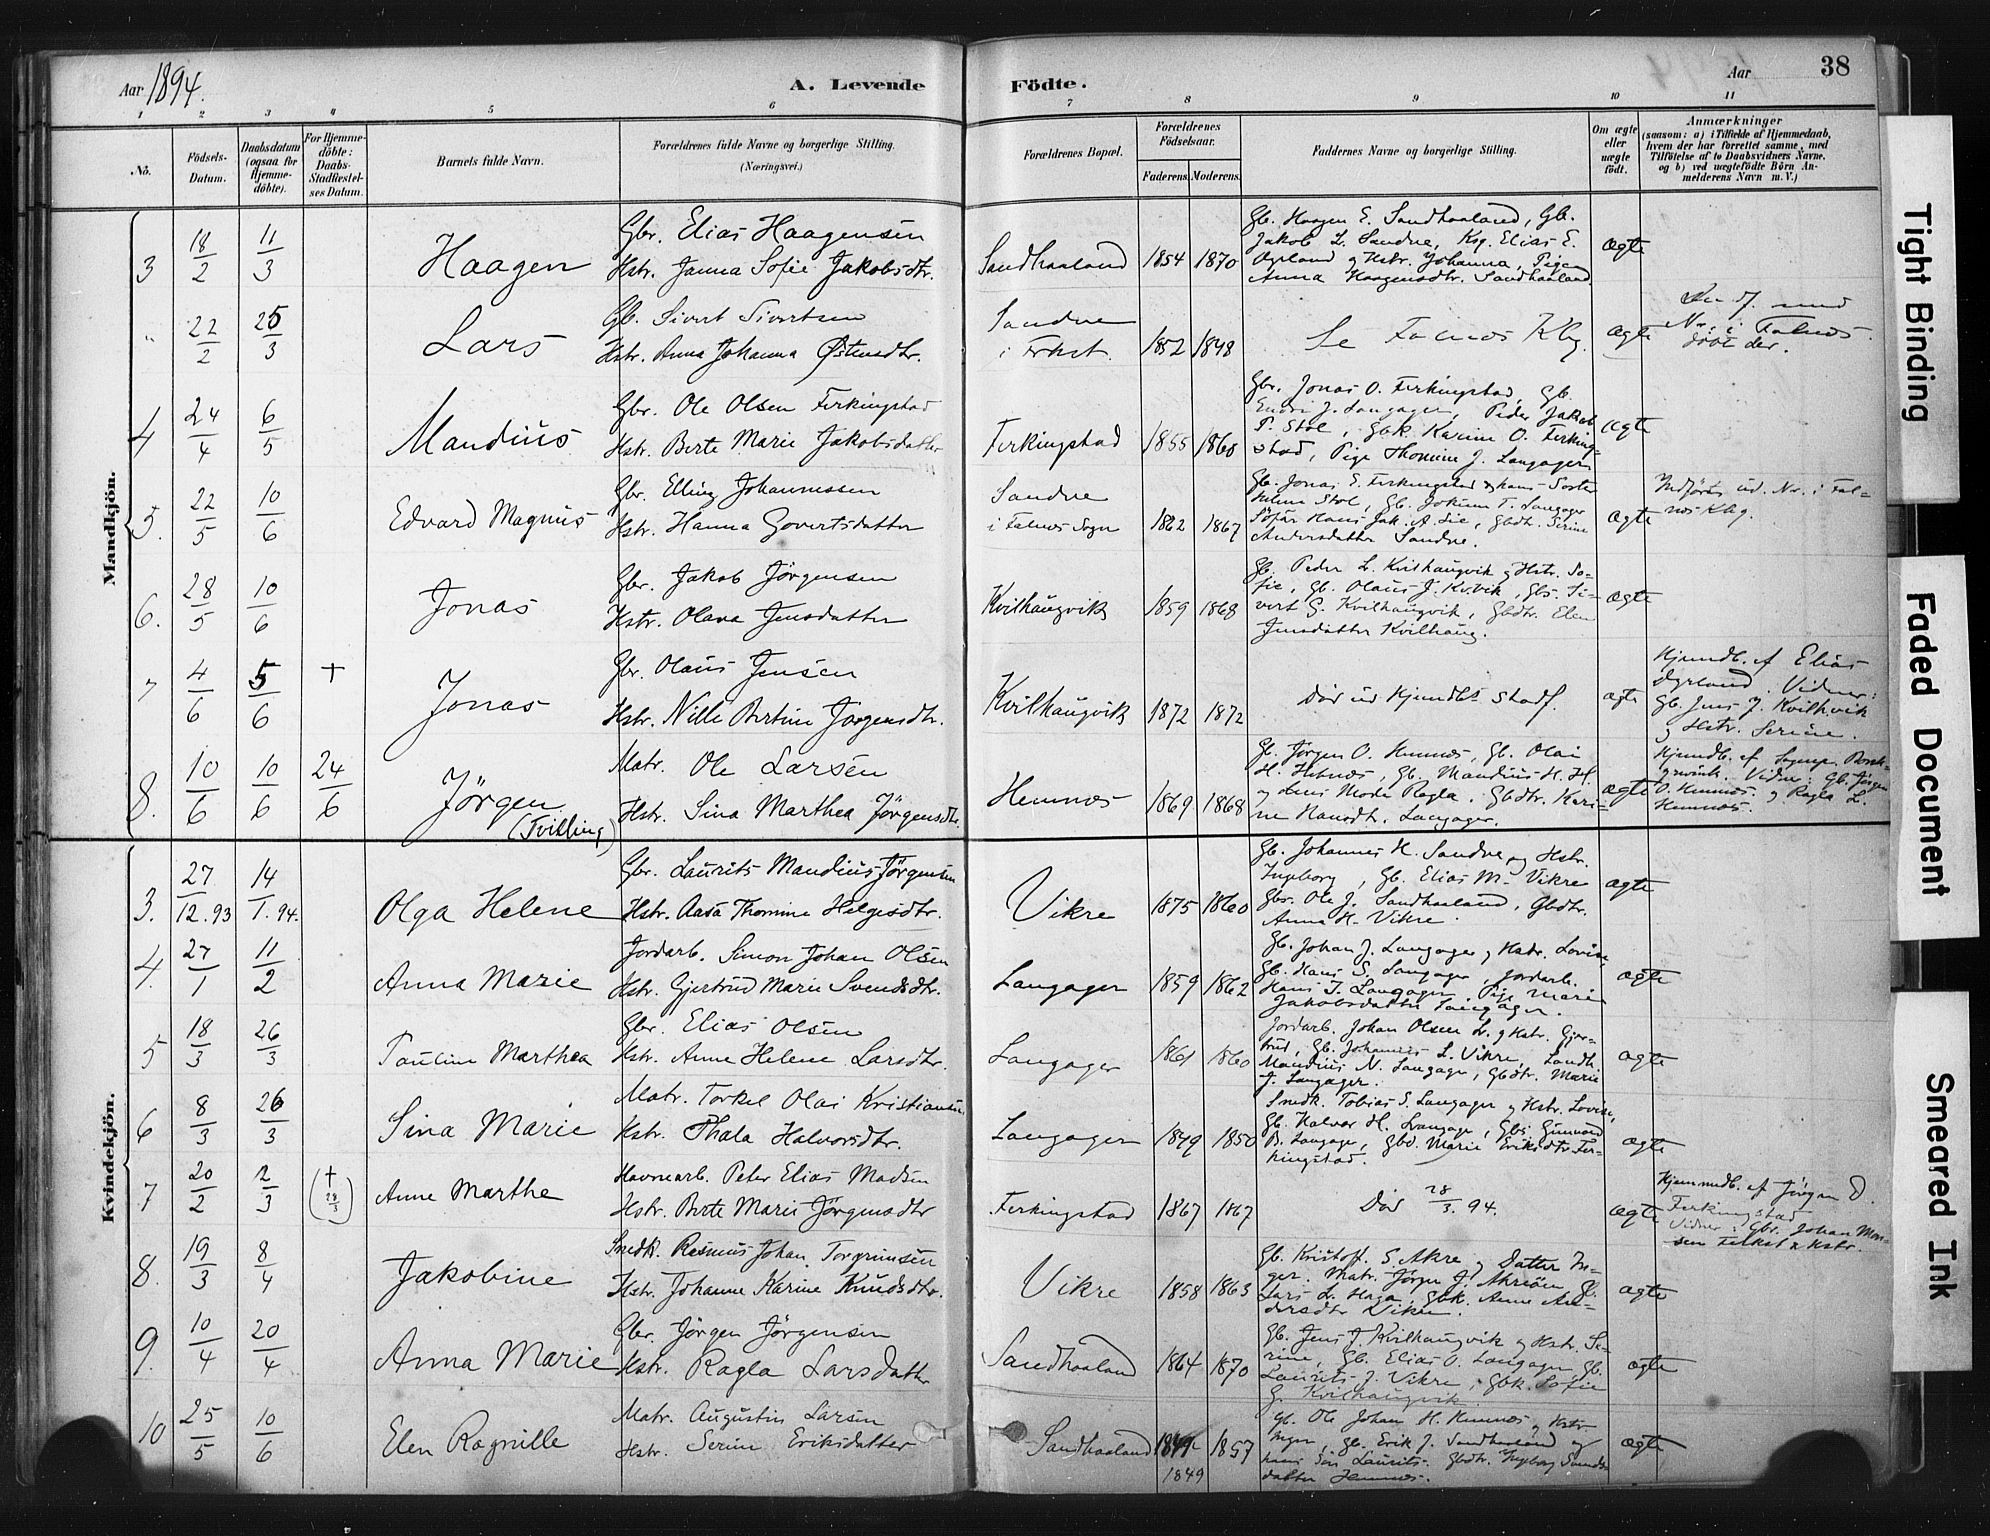 Aar 1894.
A. Levende Födte.
Aar
38
1 2 3 4 5 6 7 8 9 10 11
No.
Födsels-Datum.
Daabsdatum (ogsaa for Hjemme-döbte).
For Hjemme-döbte: Daabs-Stadfæstel-ses Datum.
Barnets fulde Navn.
Forældrenes fulde Navne og borgerlige Stilling.
(Næringsvei.)
Forældrenes Bopæl.
Forældrenes Födselsaar.
Faderens. Moderens.
Faddernes Navne og borgerlige Stilling.
Om ægte eller uægte födt.
Anmærkninger
(saasom: a) i Tilfælde af Hjemmedaab, hvem der har forrettet samme, med Tilföielse af to Daabsvidners Navne, og b) ved uægtefödte Börn An-melderens Navn m. V.)
Mandkjön.
3 18/2 11/3 Haagen
Gbr. Elias Haagensen
Hstr. Janna Sofie Jakobsdtr.
Sandhaaland 1854 1870
Gb. Haagen E. Sandhaaland, Gb.
Jakob L. Sandve, Ksg. Elias E.
Øgland og Hstr. Johanna, Pige
Anna Haagensdtr. Sandhaaland
ægte
" 22/2 25/3 Lars
Gb. Sivert Sivertsen
Hstr. Anna Johanna Østensdtr.
Sandve
i Frkst. 1852 1848
Se Falnæs Kbg. ægte
Nr. i Falnæs.
döbt der.
4 24/4 6/5 Mandius
Gbr. Ole Olsen Ferkingstad
Hstr. Berte Marie Jakobsdatter
Ferkingstad 1855 1860
Gbr. Jonas O. Ferkingstad, Gb.
Endre J. Langager, Peder Jakob
P. Stol, Gbk. Karine O. Ferking-
stad, Pige Thomine J. Langager
ægte
5. 22/5 10/6 Edvard Magnus
Gbr. Elling Johannessen
Hstr. Hanna Govertsdatter
Sandve
i Falnæs Sogn 1862 1867
Gb. Jonas E. Ferkingstad & hans Søster
Stol, Gb. Jokum T. Langager
Andersdatter Sandve.
ægte
Indföres ud. Nr. i Fal-
næs Kbg.
6. 28/5 10/6 Jonas
Gbr. Jakob Jörgensen
Hstr. Olava Jensdatter
Kvilhaugvik 1859 1868
Gb. Peder L. Kvilhaugvik og Hstr. So-
fie, Gb. Olaus J. Kv.vik, Gbs. Si-
vert G. Kvilhaugvik, Gbdtr. Elen
Jensdatter Kvilhaug.
ægte
7 4/6 5/6 + Jonas
Gbr. Olaus Jensen
Hstr. Nille Bertine Jörgensdtr.
Kvilhaugvik 1872 1872
Död ud Hjemdbs Stadf. ægte
Hjemdb. af Elias
Øygland. Vidner:
Gb. Jens J. Kvilhvik
og Hstr. Serine.
8. 10/6 10/6 24/6 Jörgen
(Tvilling)
Matr. Ole Larsen
Hstr. Sina Marthea Jörgensdtr.
Hemnæs 1869 1868
Gb. Jörgen O. Hemnæs, Gb. Olai
H. Hemnæs, Gb. Mandius H. H.
og dens Moder Ragla, Gbdtr. Kari-
ne Hansdt. Langager.
ægte
O. Hemnæs og Ragla L.
Hemnæs.
Kvindekjön.
3. 27/12.93 14/1.94. Olga Helene
Gbr. Laurits Mandius Jörgensen
Hstr. Aasa Thomine Helgesdtr.
Vikre 1875 1860
Gb. Johannes H. Sandve og Hstr.
Ingeborg, Gb. Elias M. Vikre
Gbs. Ole J. Sandhaaland, Gbdtr.
Anna H. Vikre.
ægte
4. 27/1 11/2 Anna Marie
Jordarb. Simon Johan Olsen
Hstr. Gjertrud Marie Svendsdtr.
Langager 1859 1862
Gb. Johan J. Langager og Hstr. Lovise,
Gb. Hans S. Langager, Jordarb.
Hans J. Langager, Pige Marie
Jakobsdatter Langager.
ægte
5 18/3 26/3 Pauline Marthea
Gbr. Elias Olsen
Hstr. Anne Helene Larsdtr.
Langager 1861 1860
Jordarb. Johan Olsen L. og Hstr. Gjer-
trud, Gb. Johannes L. Vikre, Landh.
Mandius N. Langager, Gbdtr. Marie
J. Langager.
ægte
6 8/3 26/3 Sina Marie
Matr. Torkel Olai Kristiansen
Hstr. Thala Halvorsdtr.
Langager 1849 1850
Snedk. Tobias S. Langager og Hstr. Lovise,
Gb. Halvor H. Langager, Gbs. Gunvald
B. Langager, Gbd. Marie Eriksdtr. Fer-
kingstad.
ægte
7 20/2 2/3 (+ 28/3) Anne Marthe
Havnearb. Peter Elias Madsen
Hstr. Berte Marie Jörgensdtr
Ferkingstad 1867 1867
Död 28/3.94. ægte
Hjemmedb. af Jörgen D.
Ferkingstad
Vidner: Gbr. Johan Mon-
sen Ferkst & Hstr.
8. 19/3 8/4 Jakobine
Snedk. Rasmus Johan Torgrimsen
Hstr. Johanne Karine Knudsdtr.
Vikre 1858 1863
Gb. Kristoff. S. Akre og Datter In-
ger, Matr. Jörgen J. Akreön, Gb.
Lars L. Haga, Gbk. Anne An-
dersdtr Vikre.
ægte
9. 10/4 20/4 Anna Marie
Gbr. Jörgen Jörgensen
Hstr. Ragla Larsdatter
Sandhaaland 1864 1870
Gb. Jens J. Kvilhaugvik og Hstr. Se-
rine, Gb. Elias O. Langager, Gb.
Laurits J. Vikre, Gbk. Sofie
G. Kvilhaugvik.
ægte
10 25/5 10/6 Elen Ragnille
Matr. Augustin Larsen
Hstr. Serine Eriksdatter
Sandhaaland 1849 1857
Gb. Ole Johan H. Hemnæs og Hstr
Inger, Gb. Erik J. Sandhaaland og
hans Sön Laurits, Gbdtr. Ingeborg Svends-
datter Hemnæs.
ægte
Tight Binding
Faded Document
Smeared Ink